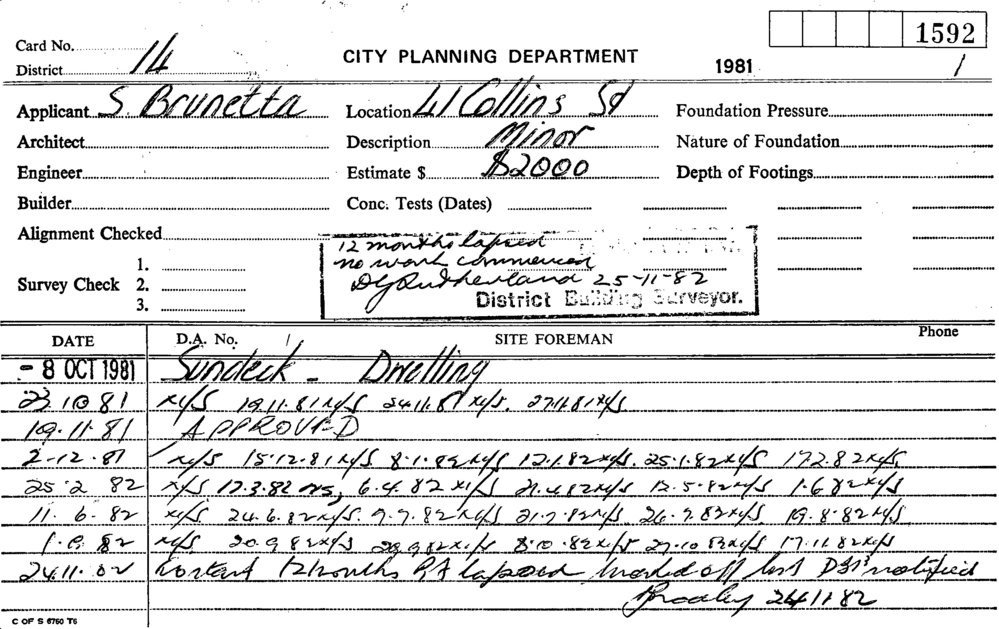 1592
Card No.
District 14
CITY PLANNING DEPARTMENT
1981
1
Applicant S. Brunetta
Location 41 Collins St
Foundation Pressure
Architect
Description Minor
Nature of Foundation
Engineer
Estimate $ $2000
Depth of Footings
Builder
Conc. Tests (Dates)
Alignment Checked
12 months lapsed
no work commenced
DJ Rutherland 25-11-82
District Building Surveyor.
Survey Check
1.
2.
3.
DATE
D.A. No. 1
SITE FOREMAN
Phone
- 8 OCT 1981 Sundeck - Dwelling
23.10.81 N/S 19.11.81 N/S 24.11.81 N/S. 27.11.81 N/S
19.11.81 APPROVED
2-12.81 N/S 15.12.81 N/S 8.1.82 N/S 12.1.82 N/S. 25.1.82 N/S 17.2.82 N/S
25.2 82 N/S 17.3.82 N/S, 6.4.82 N/S 21.4.82 N/S 12.5.82 N/S 1.6 82 N/S
11.6.82 N/S. 24.6.82 N/S. 9.7.82 N/S 21.7.82 N/S. 26.7.82 N/S 19.8.82 N/S
1.9.82 N/S 20.9 82 N/S 29.9.82 N/S 8.10.82 N/S 27.10.82 N/S 17.11.82 N/S
24.11.82 12 months BA lapsed marked off list DBS notified
24.11.82
C OF S 6760 T6